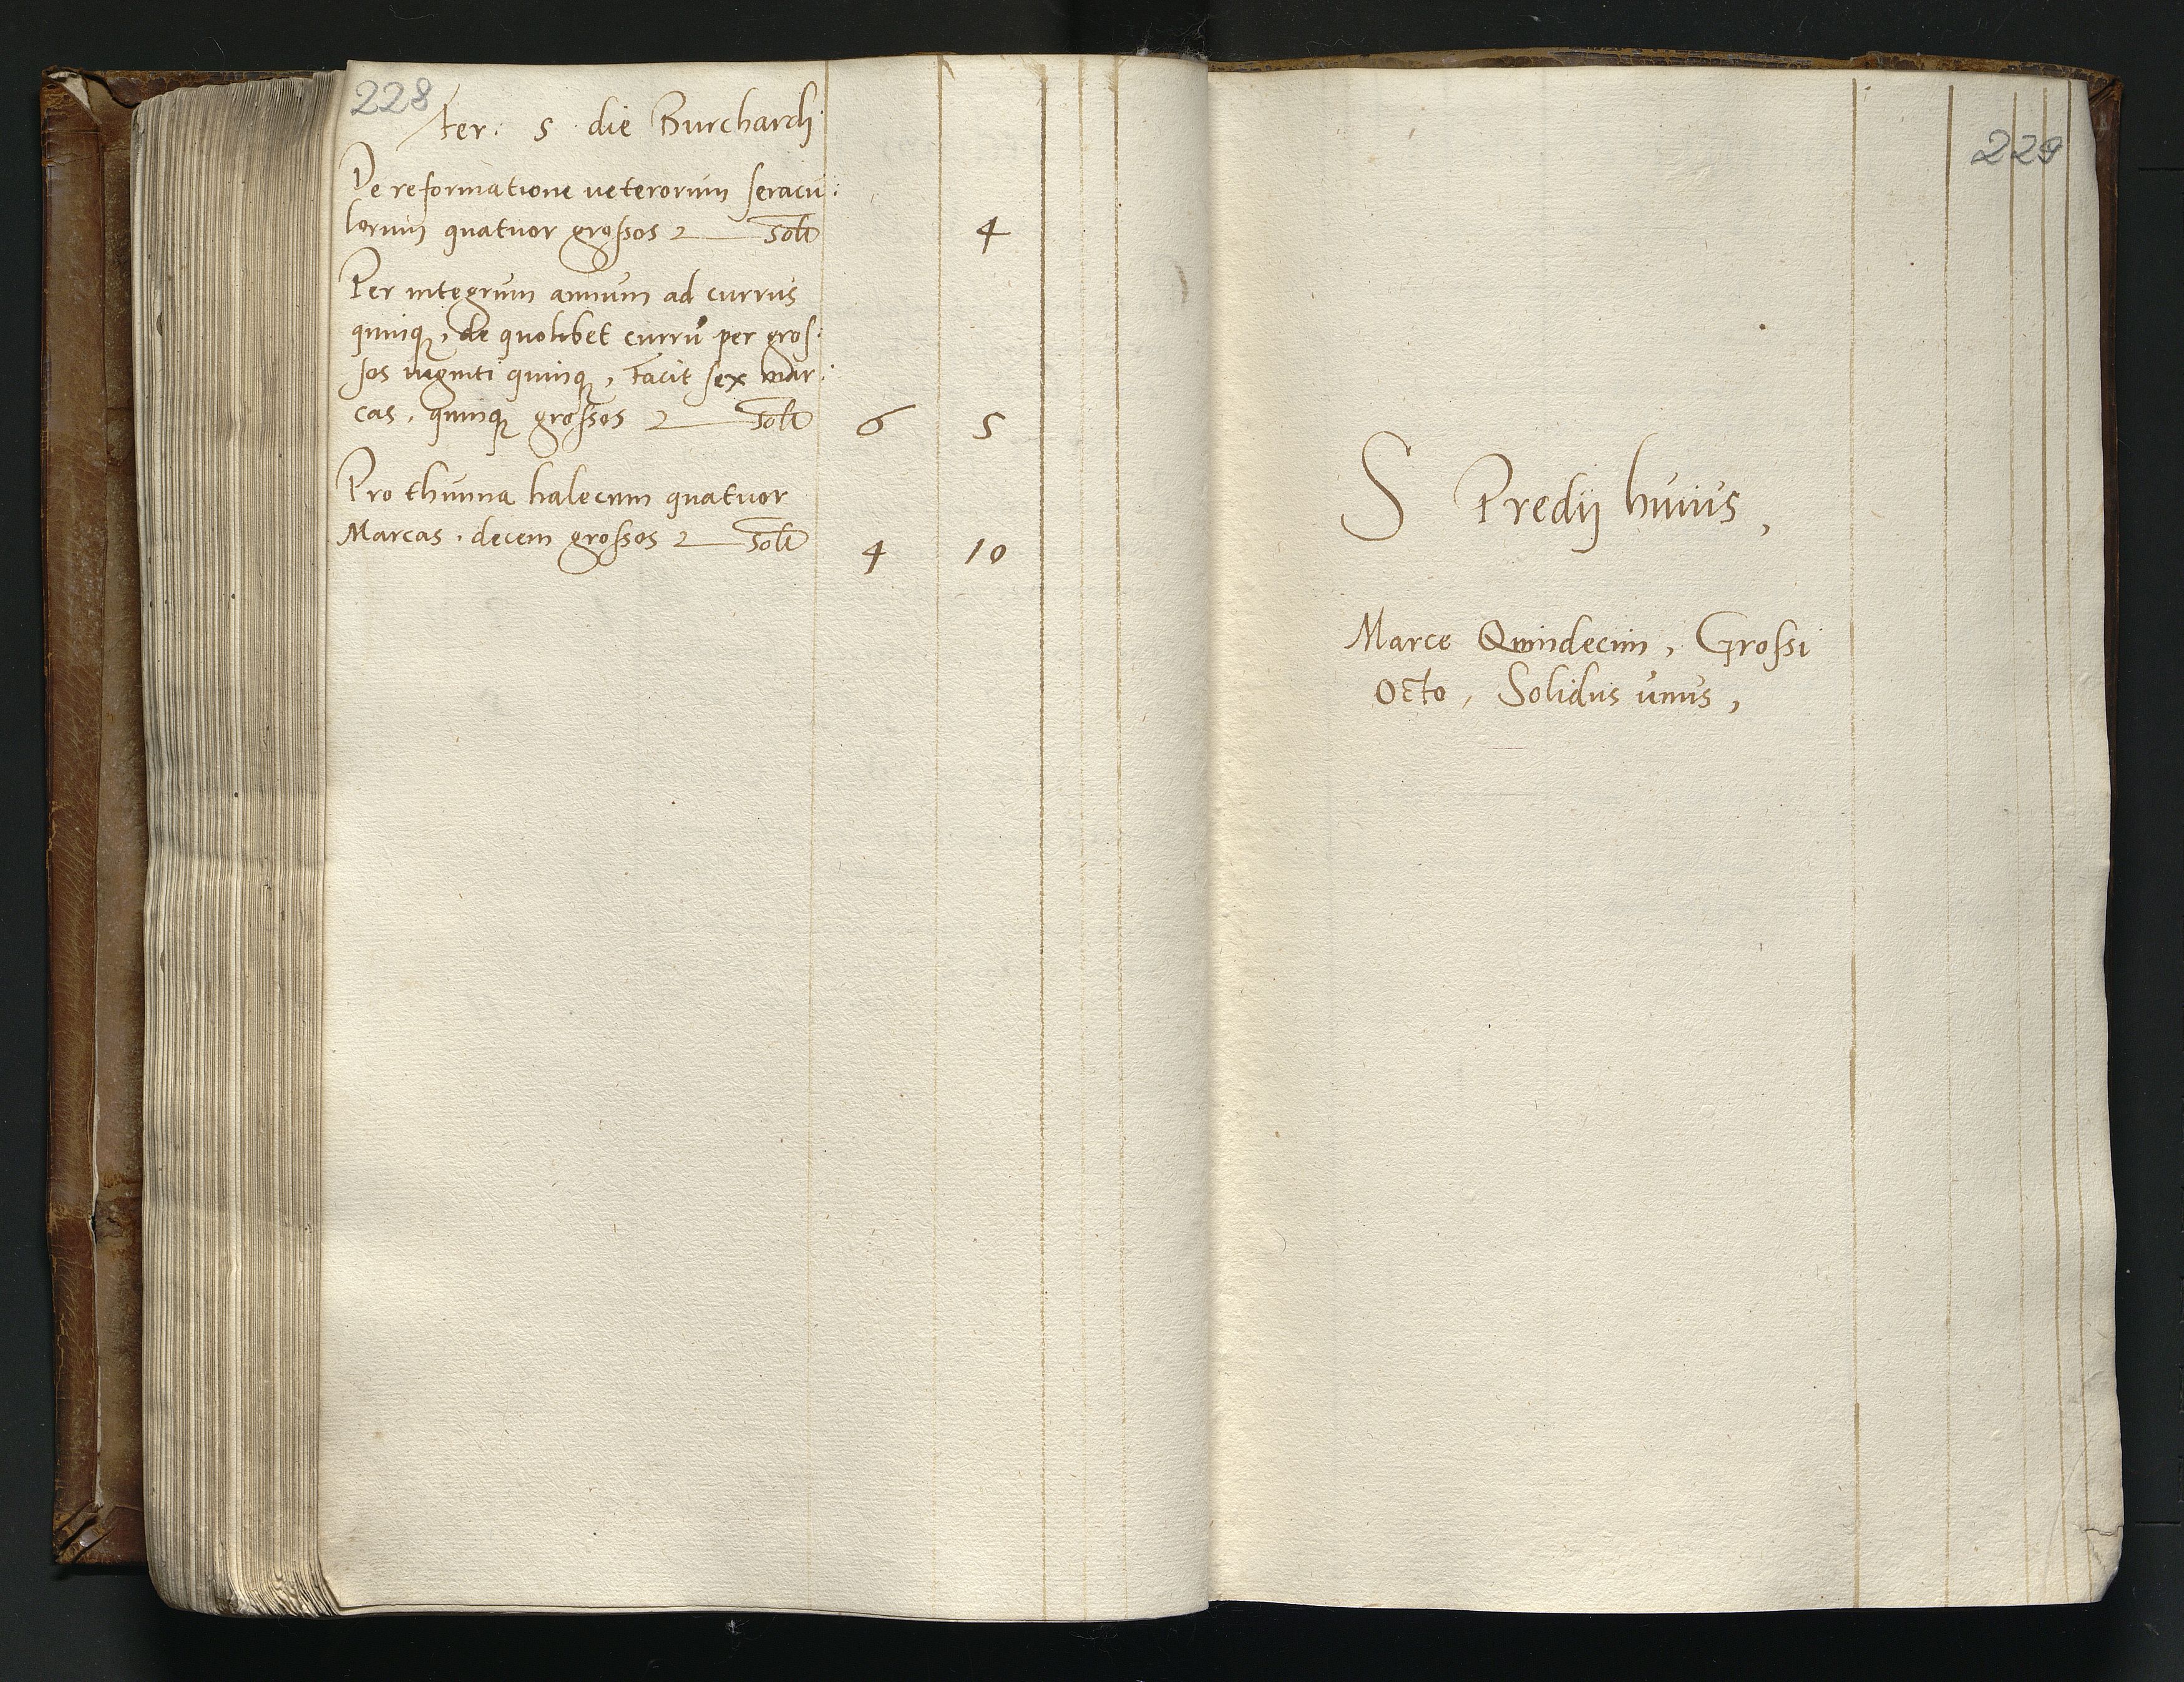 228
ter: 5 die Burchardi
De reformatione veterorum seracu:
lorum quatuor grossos solt 4
Per integrum annum ad currus
quinq, de quolibet curru per gros:
sos viginti quinq, Facit sex mar:
cas, quinq grossos solt 6 5
Pro thunna halecum quatuor
Marcas, decem grossos solt 4 10
229
S Predij huius,
Marce Quindecim, Grossi
Octo, Solidus unus,